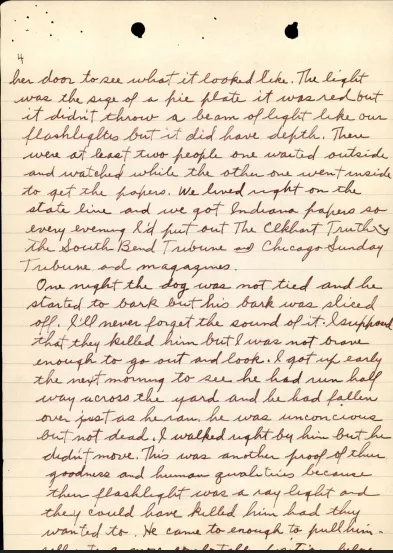 4
her door to see what it looked like. The light
was the size of a pie plate it was red but
it didn't throw a beam of light like our
flashlights but it did have depth. There
were at least two people one waited outside
and watched while the other one went inside
to get the papers. We lived right on the
state line and we got Indiana papers so
every evening I'd put out The Elkhart Truth &
the South Bend Tribune and Chicago Sunday
Tribune and magazines.
One night the dog was not tied and he
started to bark but his bark was sliced
off. I'll never forget the sound of it. I suppose
that they killed him but I was not brave
enough to go out and look. I got up early
the next morning to see he had run half
way across the yard and he had fallen
over just as he ran. he was unconcious
but not dead. I walked right by him but he
didn't move. This was another proof of their
goodness and human qualities because
their flashlight was a ray light and
they could have killed him had they
wanted to. He came to enough to pull him-